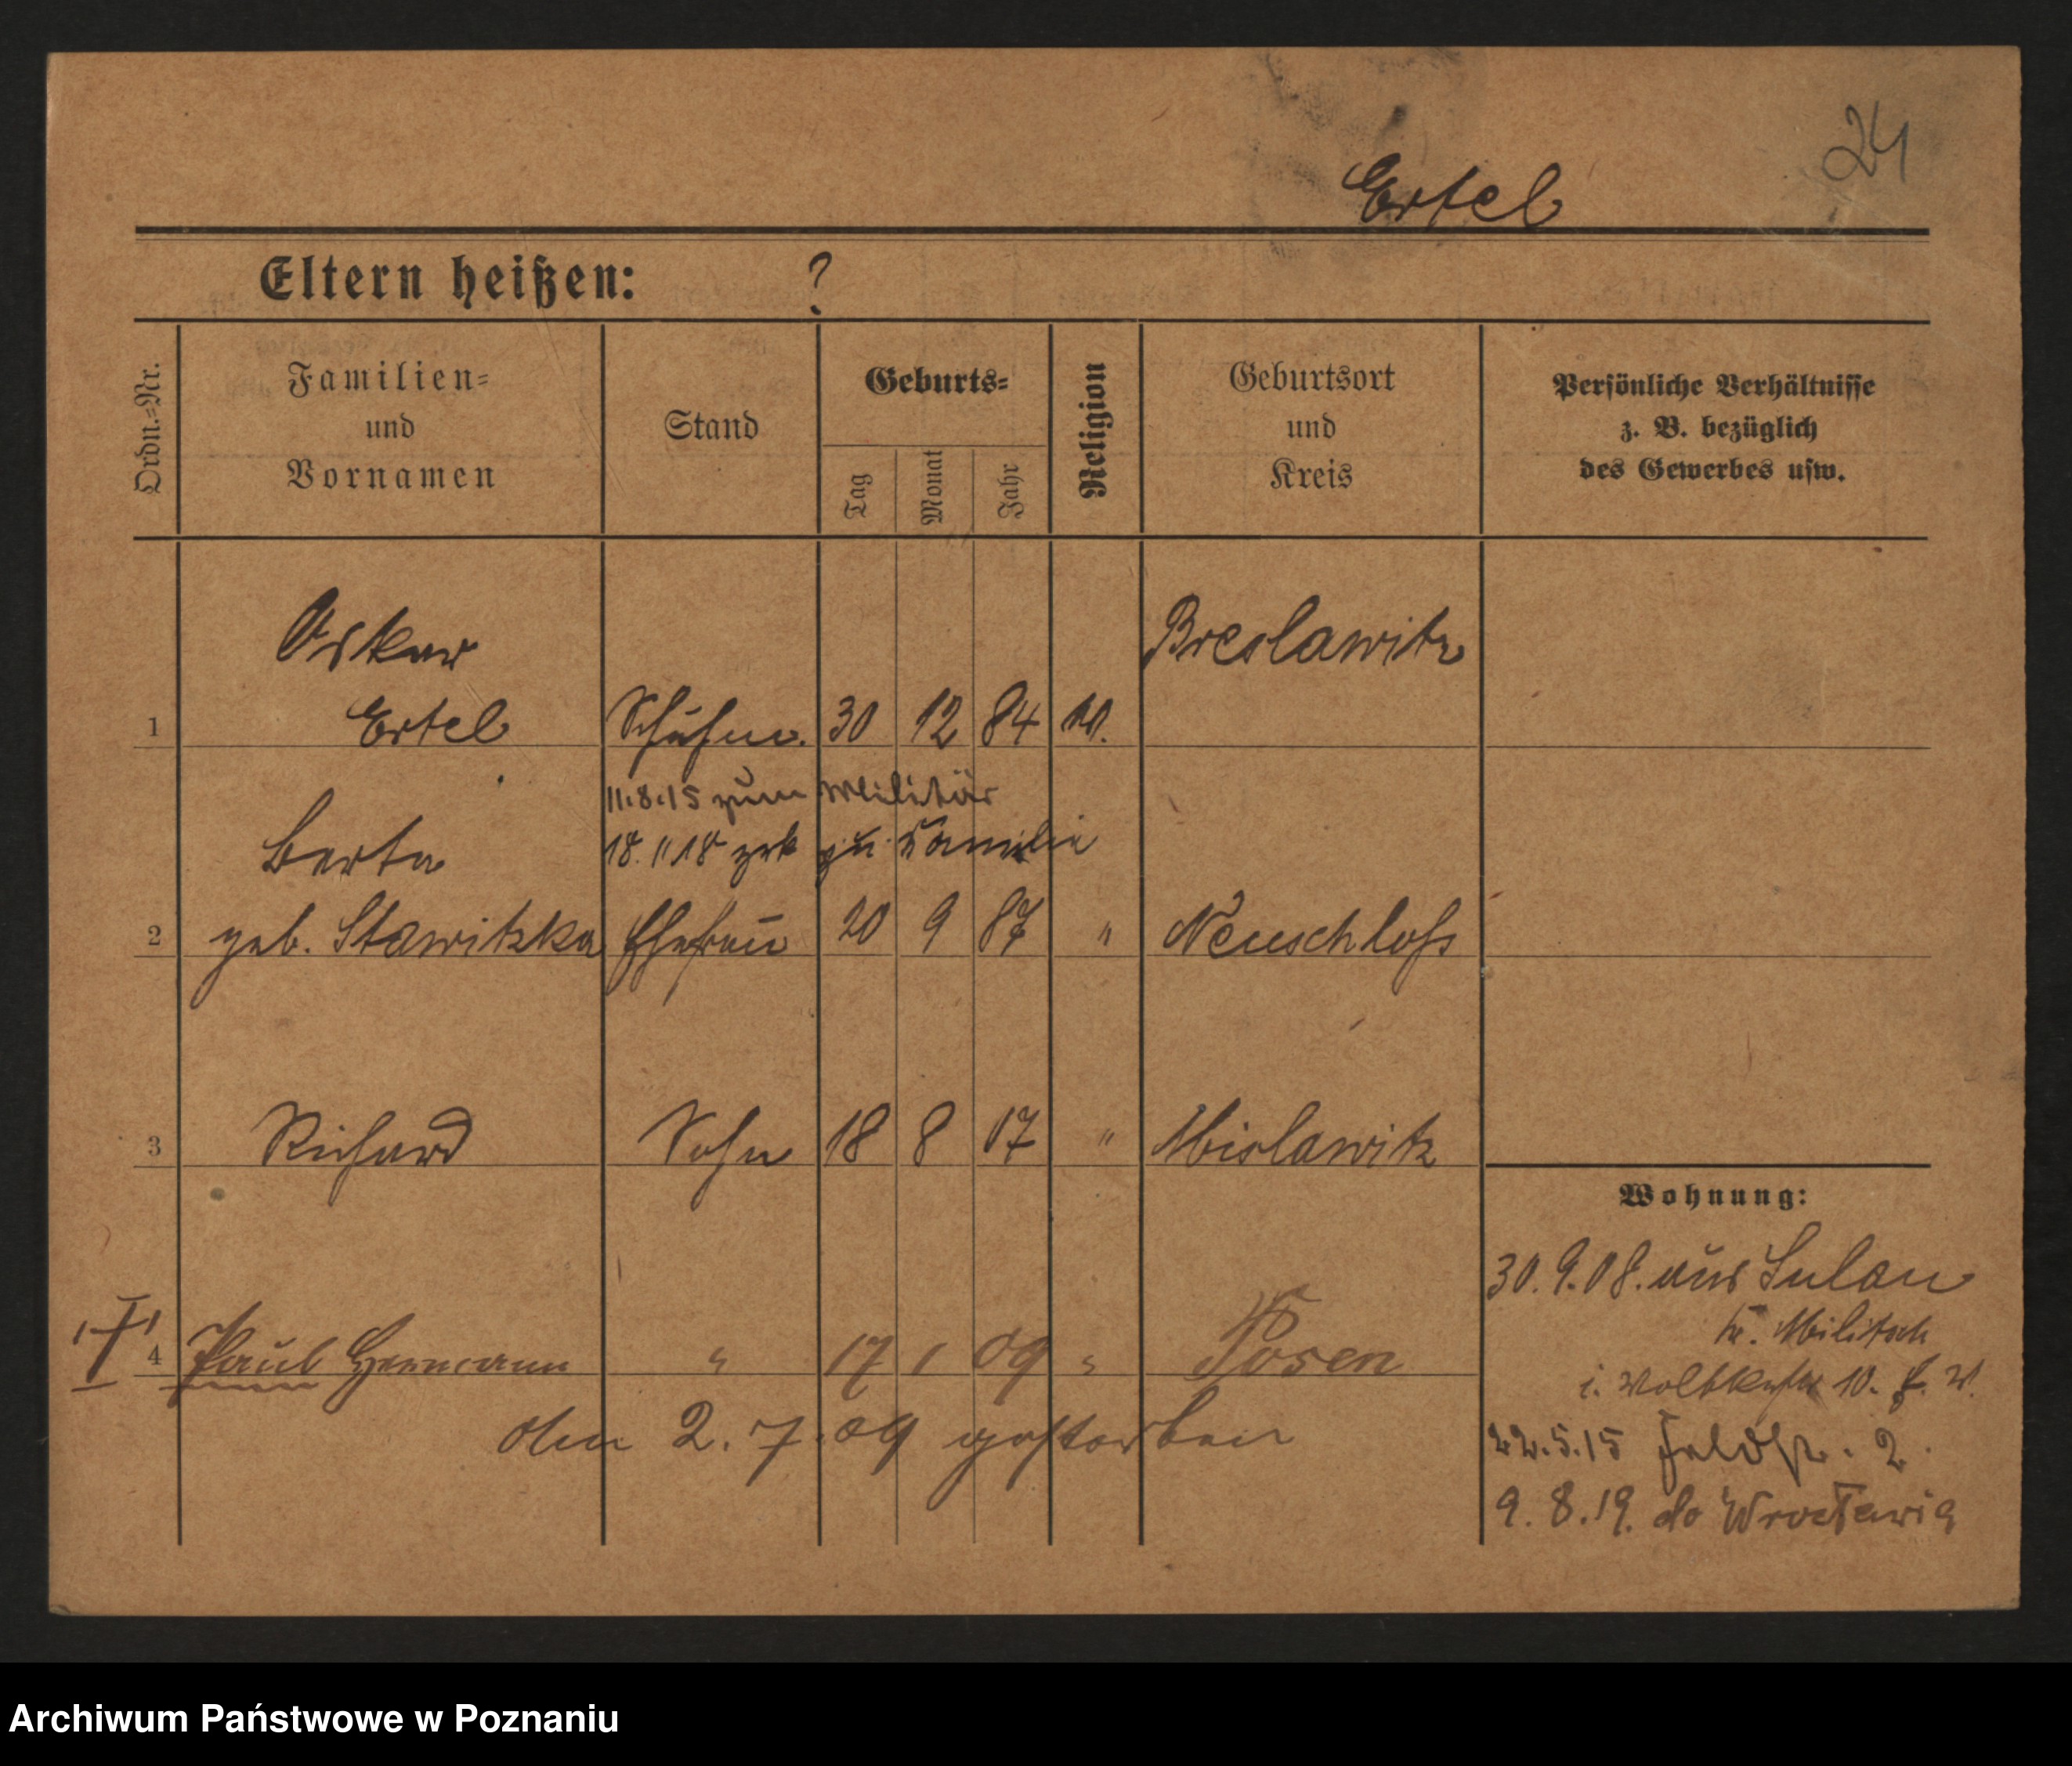 24
Ertel
Eltern heißen: ?
Ordn.=Nr.
Familien=
und
Vornamen
Stand
Geburts=
Tag
Monat
Jahr
Religion
Geburtsort
und
Kreis
Persönliche Verhältnisse
z. B. bezüglich
des Gewerbes usw.
Oskar Breslawitz
1 Ertel Schuhm. 30 12 84
11.8.15 zum Militär
Berta 18.11.18 zrk zu Familie
2 geb. Stawitzka Ehefrau 20 9 87 " Neuschloss
3 Richard Sohn 18 8 07 " Mislawitz
Wohnung:
30.9.08. aus Sulau
Kr. Militsch
4 Paul Hermann " 17 1 09 " Posen
i. 10.
den 2.7.09 gestorben
22.5.15 Feldstr. 2.
9.8.19. do Wrocławia
Archiwum Państwowe w Poznaniu